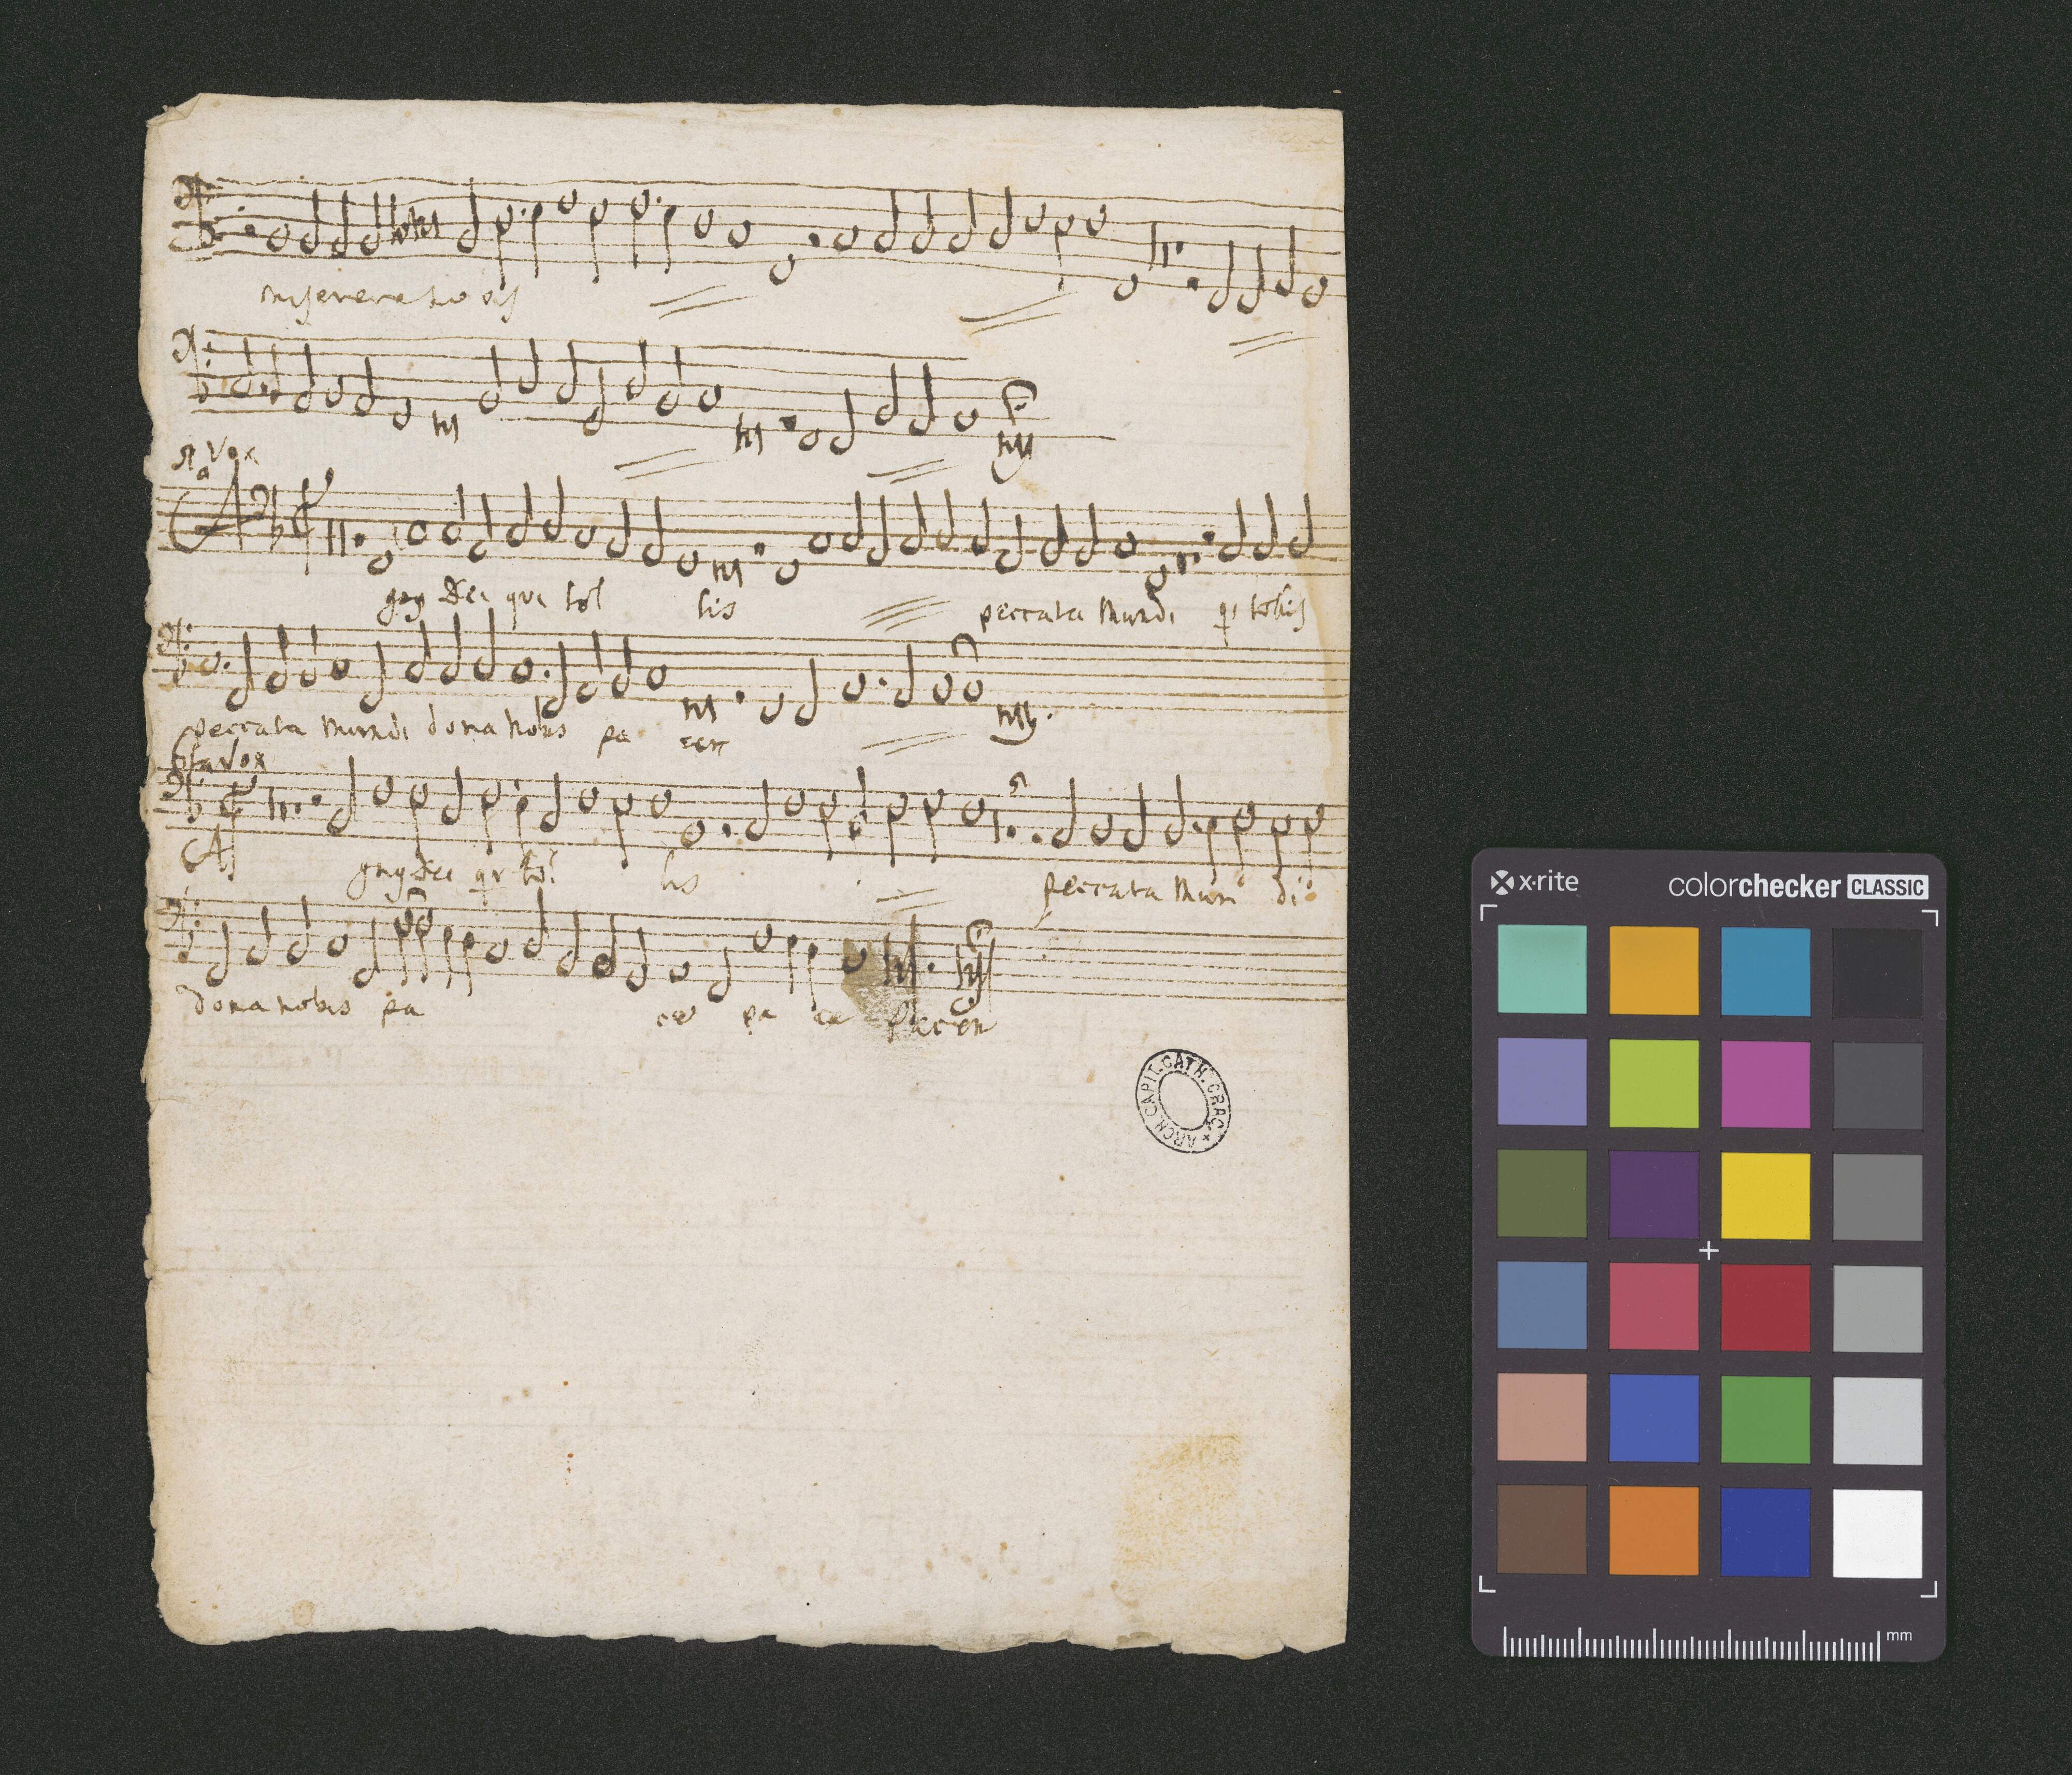 miserere no bis
Vox
A gnus Dei qui tol lis peccata Mundi qi tollis
peccata Mundi dona nobis pa cem
Vox
A gnus Dei qi tol lis peccata Mun di
dona nobis pa ce pa ce pacem
ARCH. CAPIT. CATH. CRAC. +
x-rite colorchecker CLASSIC
mm